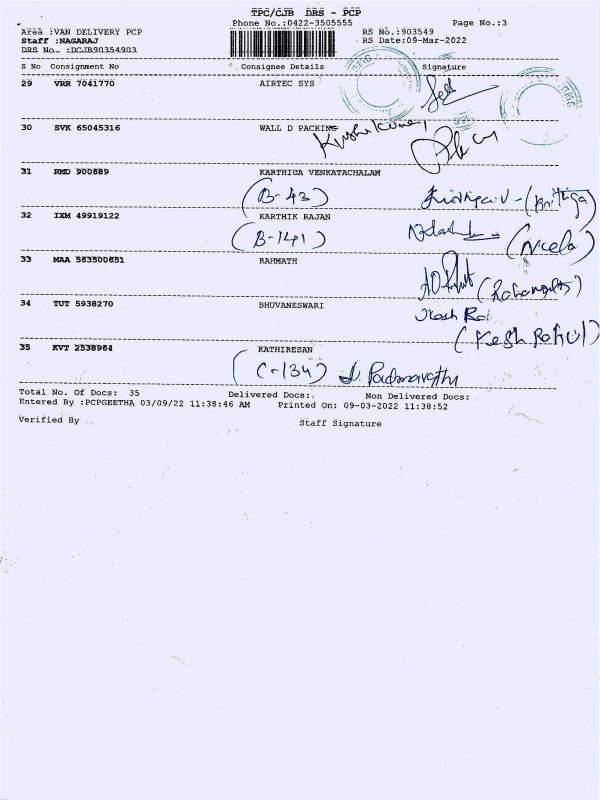 TPC/CJB DRS - PCP
Phone No.:0422-3505555 Page No.:3
Area :VAN DELIVERY PCP RS No.:903549
Staff :NAGARAJ RS Date:09-Mar-2022
DRS No. :DCJB90354903
S No Consignment No Consignee Details Signature
29 VRR 7041770 AIRTEC SYS
30 SVK 65045316 WALL D PACKING
31 RMD 900689 KARTHIGA VENKATACHALAM
(B-43)
32 IXM 49919122 KARTHIK RAJAN
(B-141)
33 MAA 563500651 RAHMATH
34 TUT 5938270 BHUVANESWARI
35 KVT 2538964 KATHIRESAN
(C-134) Padmavathi
Total No. Of Docs: 35 Delivered Docs:. Non Delivered Docs:
Entered By :PCPGEETHA 03/09/22 11:38:46 AM Printed On: 09-03-2022 11:38:52
Verified By Staff Signature